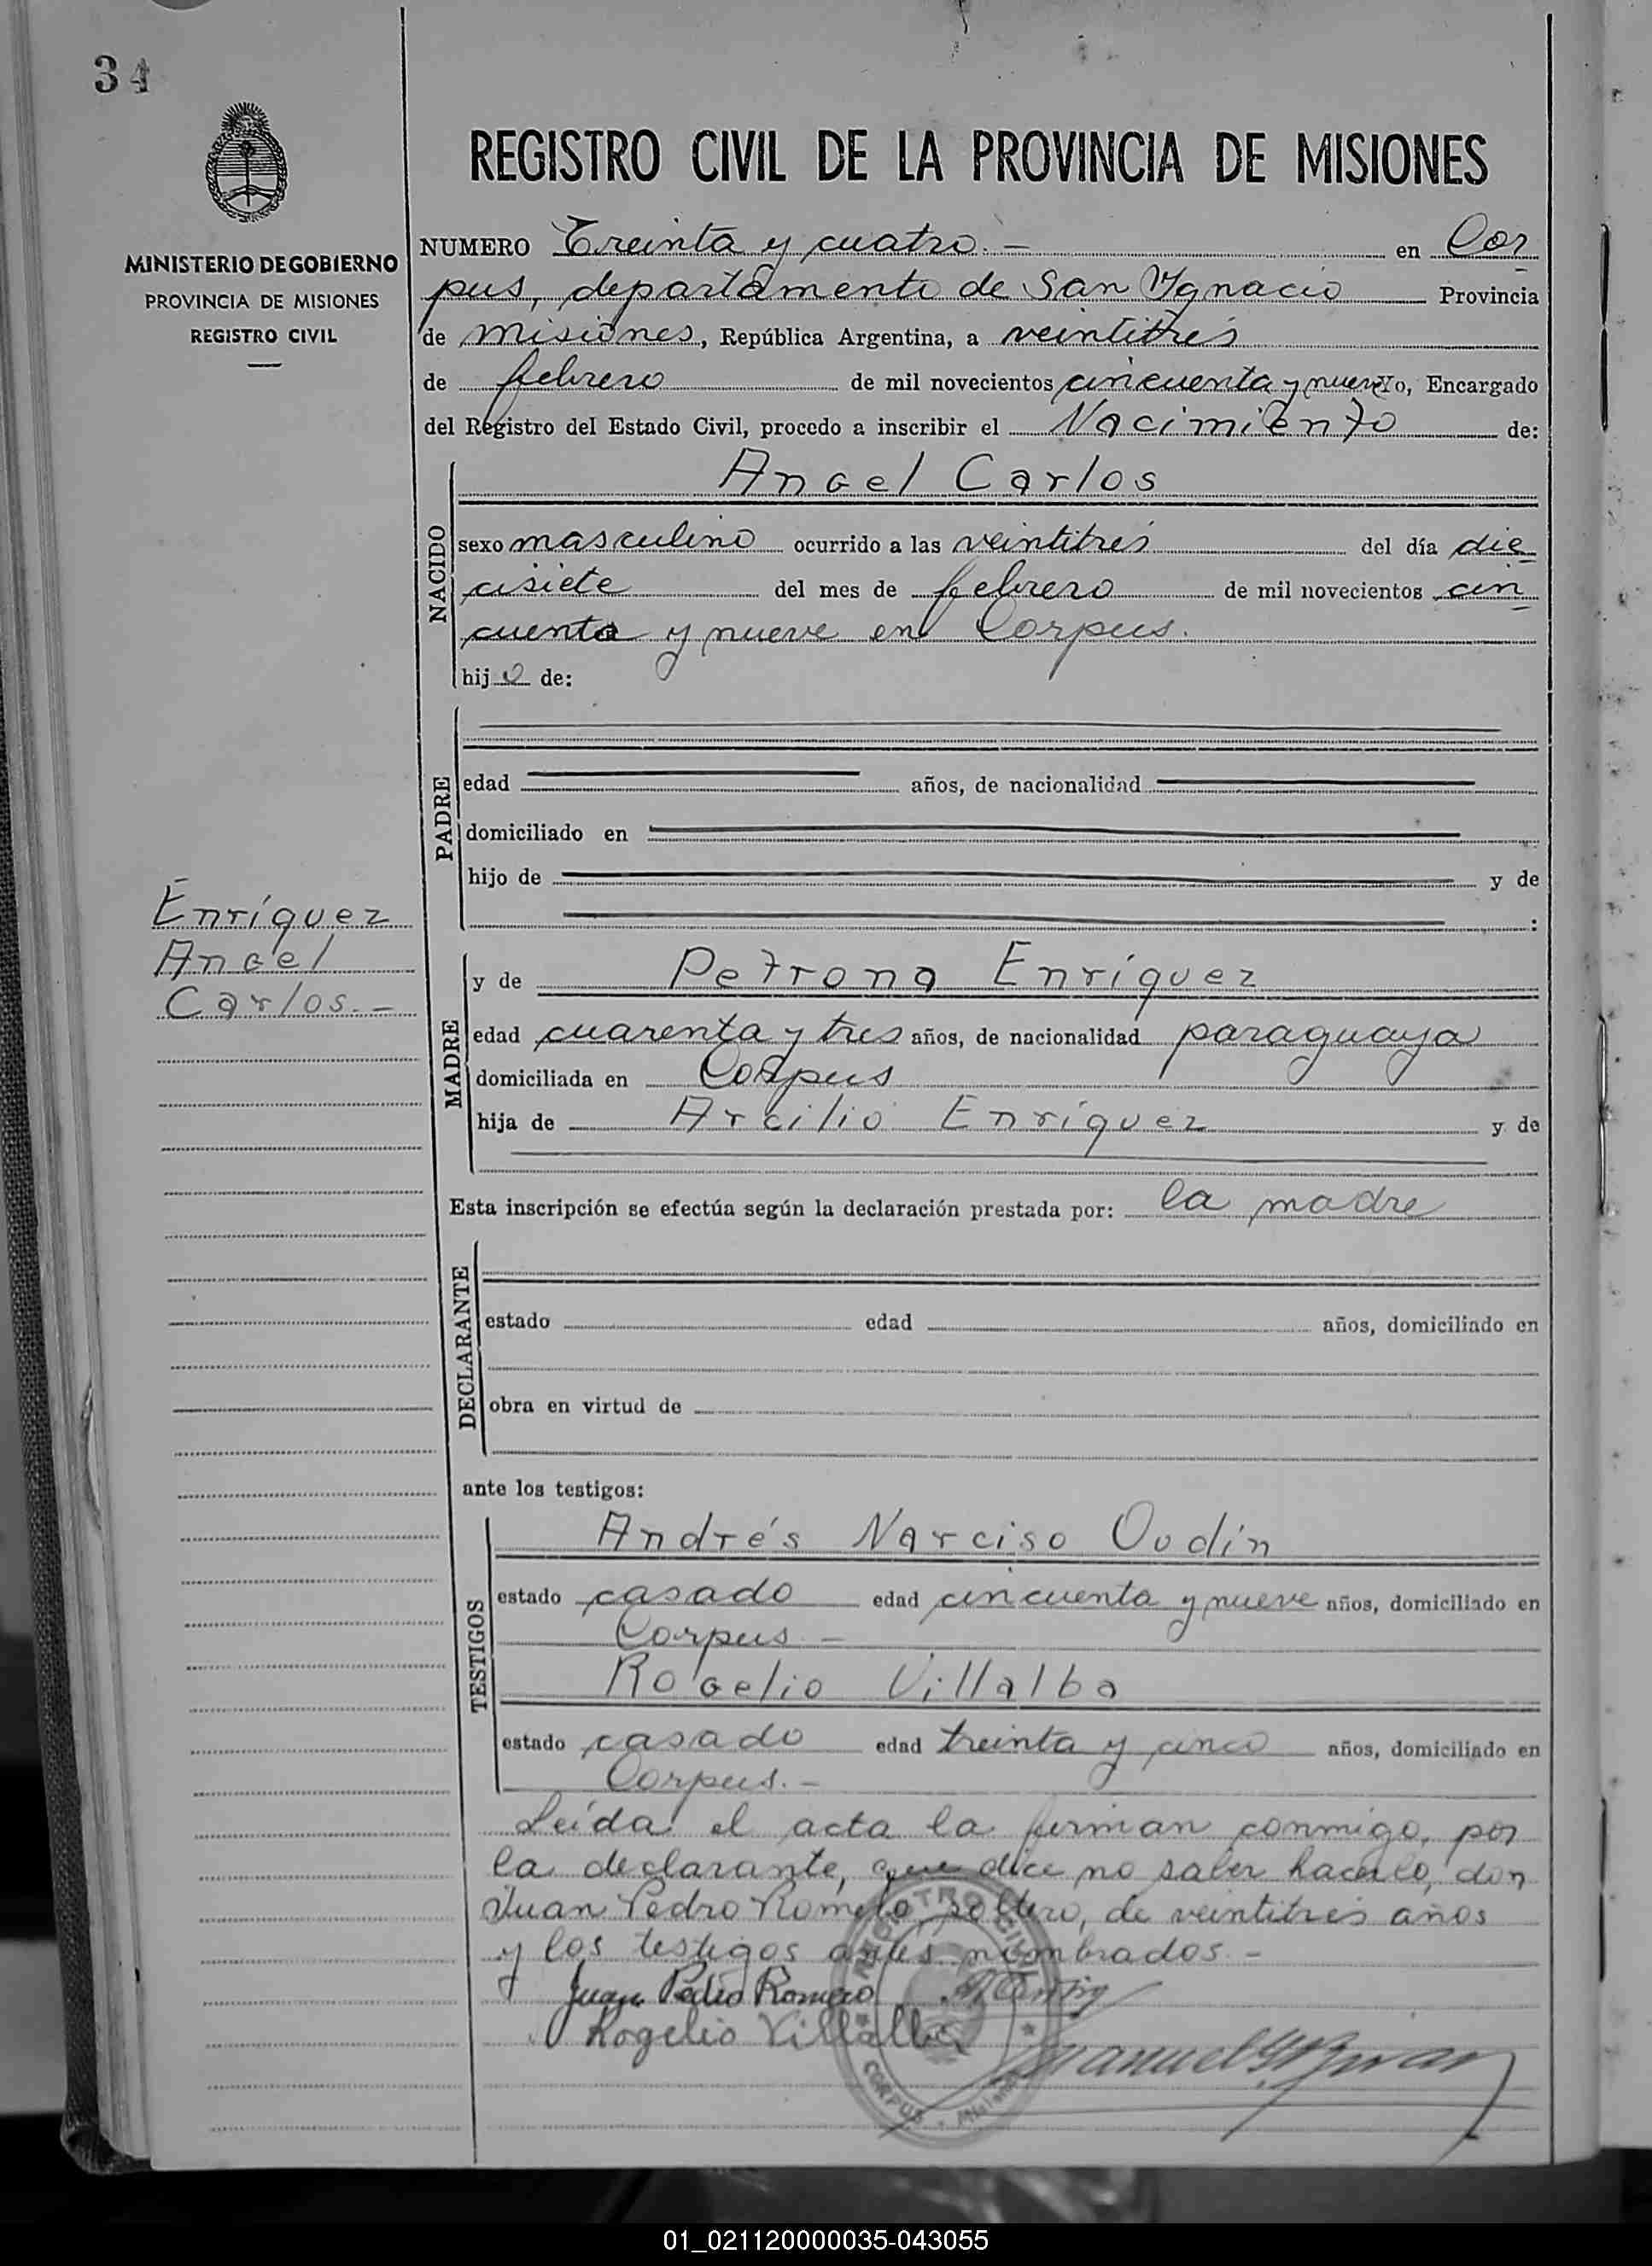 34
MINISTERIO DE GOBIERNO
PROVINCIA DE MISIONES
REGISTRO CIVIL
REGISTRO CIVIL DE LA PROVINCIA DE MISIONES
NUMERO Treinta y cuatro.- en Cor
pus, departamento de San Ygnacio Provincia
de misiones, República Argentina, a veintitrés
de febrero de mil novecientos cincuenta y nueve yo, Encargado
del Registro del Estado Civil, procedo a inscribir el Nacimiento de:
NACIDO
Angel Carlos
sexo masculino ocurrido a las veintitrés del día die
cisiete del mes de febrero de mil novecientos cin
cuenta y nueve en Corpus.
hijo de:
PADRE
edad años, de nacionalidad
domiciliado en
hijo de y de
:
Enríquez
Angel
Carlos.-
MADRE
y de Petrona Enríquez
edad cuarenta y tres años, de nacionalidad paraguaya
domiciliada en Corpus
hija de Arcilio Enríquez y de
Esta inscripción se efectúa según la declaración prestada por: la madre
DECLARANTE
estado edad años, domiciliado en
obra en virtud de
ante los testigos:
TESTIGOS
Andrés Narciso Oudín
estado casado edad cincuenta y nueve años, domiciliado en
Corpus.-
Rogelio Villalba
estado casado edad treinta y cinco años, domiciliado en
Corpus.-
Leída el acta la firman conmigo, por
la declarante, que dice no saber hacerlo, don
Juan Pedro Romero, soltero, de veintitrés años
y los testigos antes nombrados.-
Juan Pedro Romero
Rogelio Villalba
REGISTRO CIVIL
CORPUS - Misiones
01_021120000035-043055